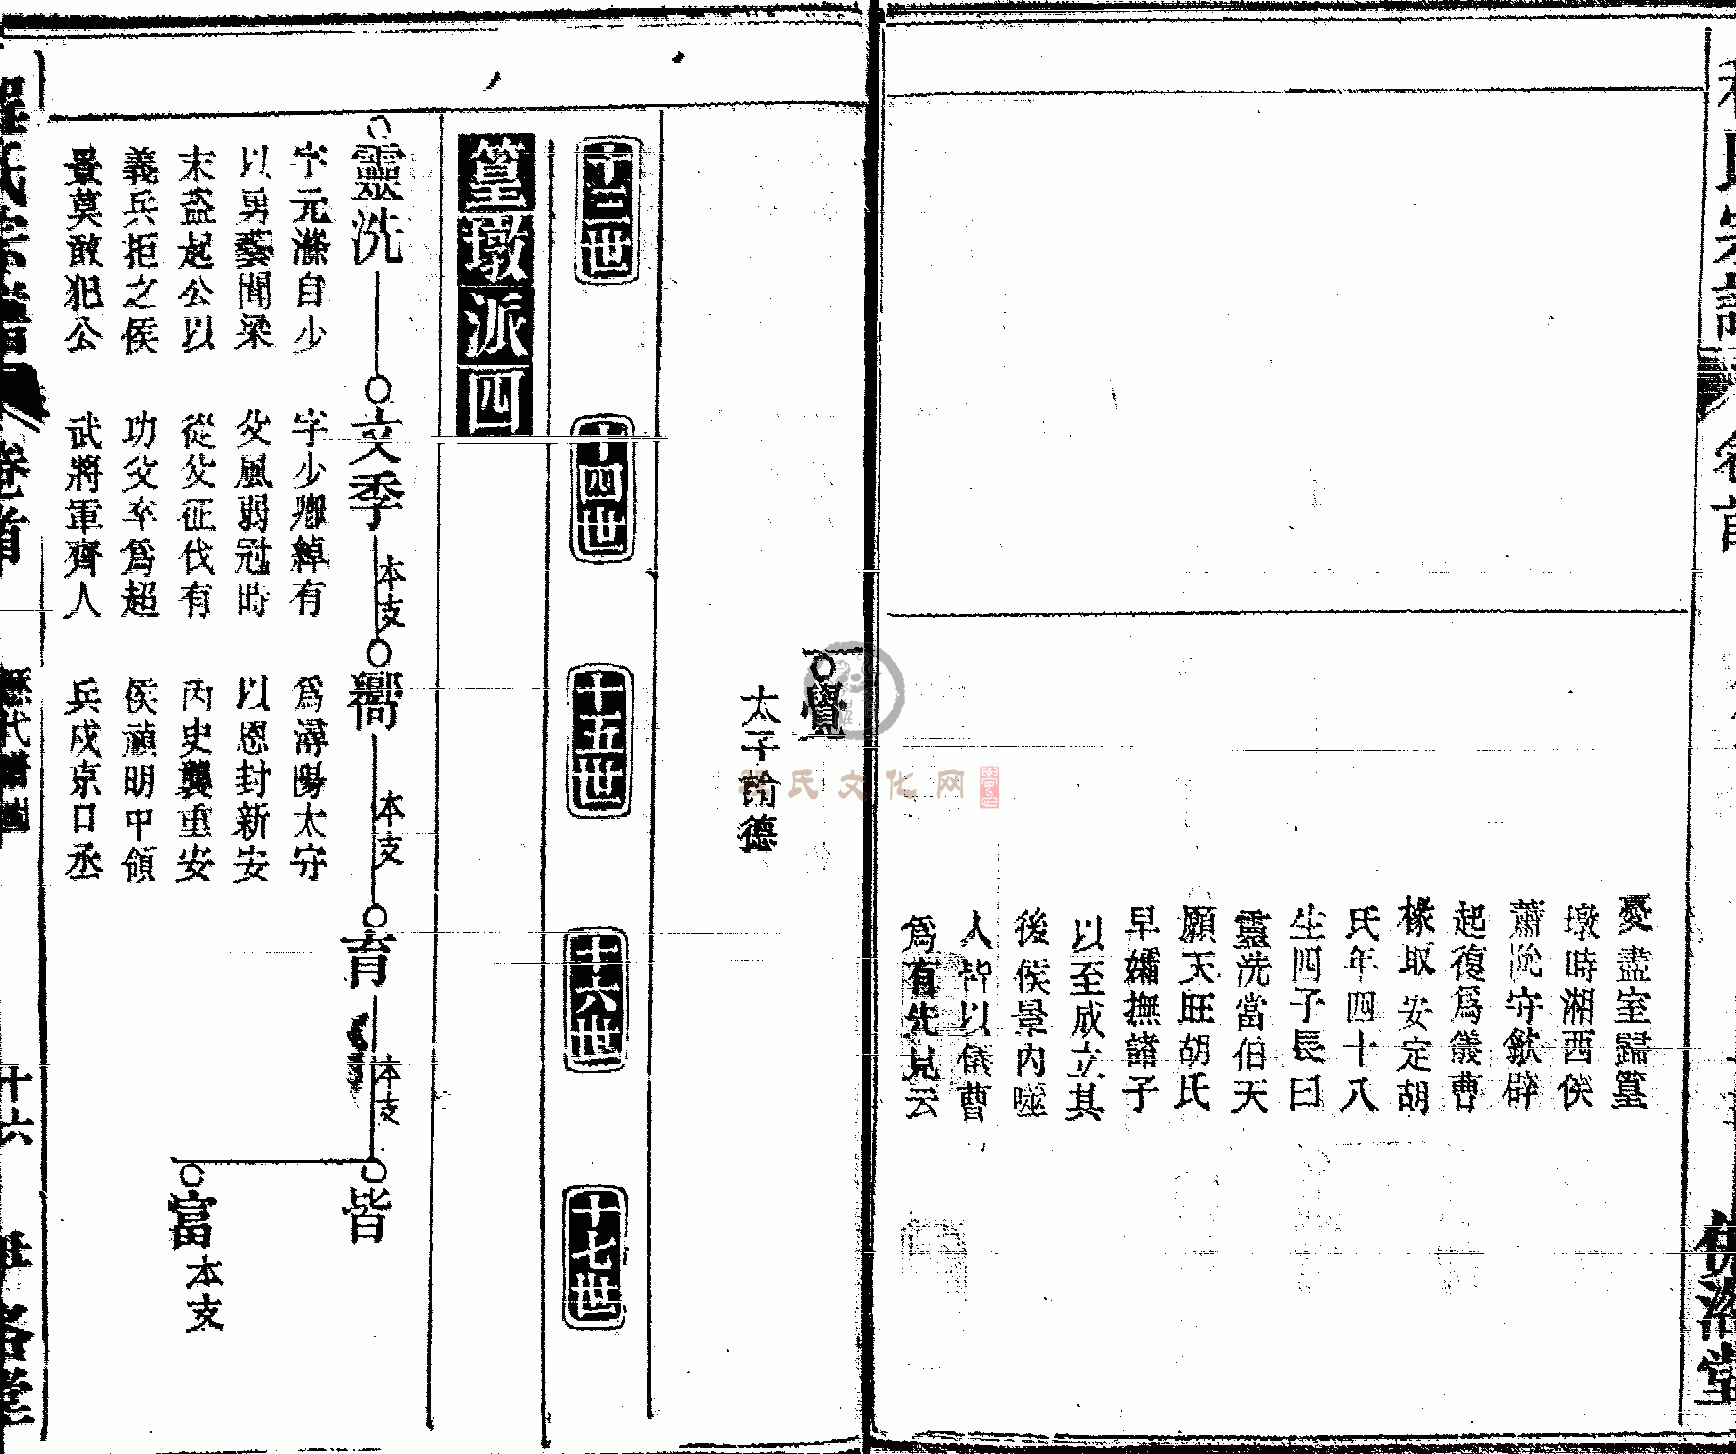 憂盡室歸篁
墩時湘西侯
蕭阮守歙辟
起復爲儀曹
椽取安定胡
氏年四十八
生四子長曰
靈洗當伯天
願天旺胡氏
早孀撫諸子
以至成立其
後侯景內噬
人皆以儀曹
爲有先見云
覺
太子諭德
程氏文化网
十三世
十四世
十五世
十六世
十七世
篁墩派四
靈洗
字元滌自少
以勇藝聞梁
末盜起公以
義兵拒之侯
景莫敢犯公
文季
本支
字少卿綽有
父風弱冠時
從父征伐有
功父卒爲超
武將軍齊人
嚮
本支
爲潯陽太守
以恩封新安
內史襲重安
侯禎明中領
兵戍京口丞
育
本支
皆
富
本支
程氏宗譜
卷首
歷代譜
十六